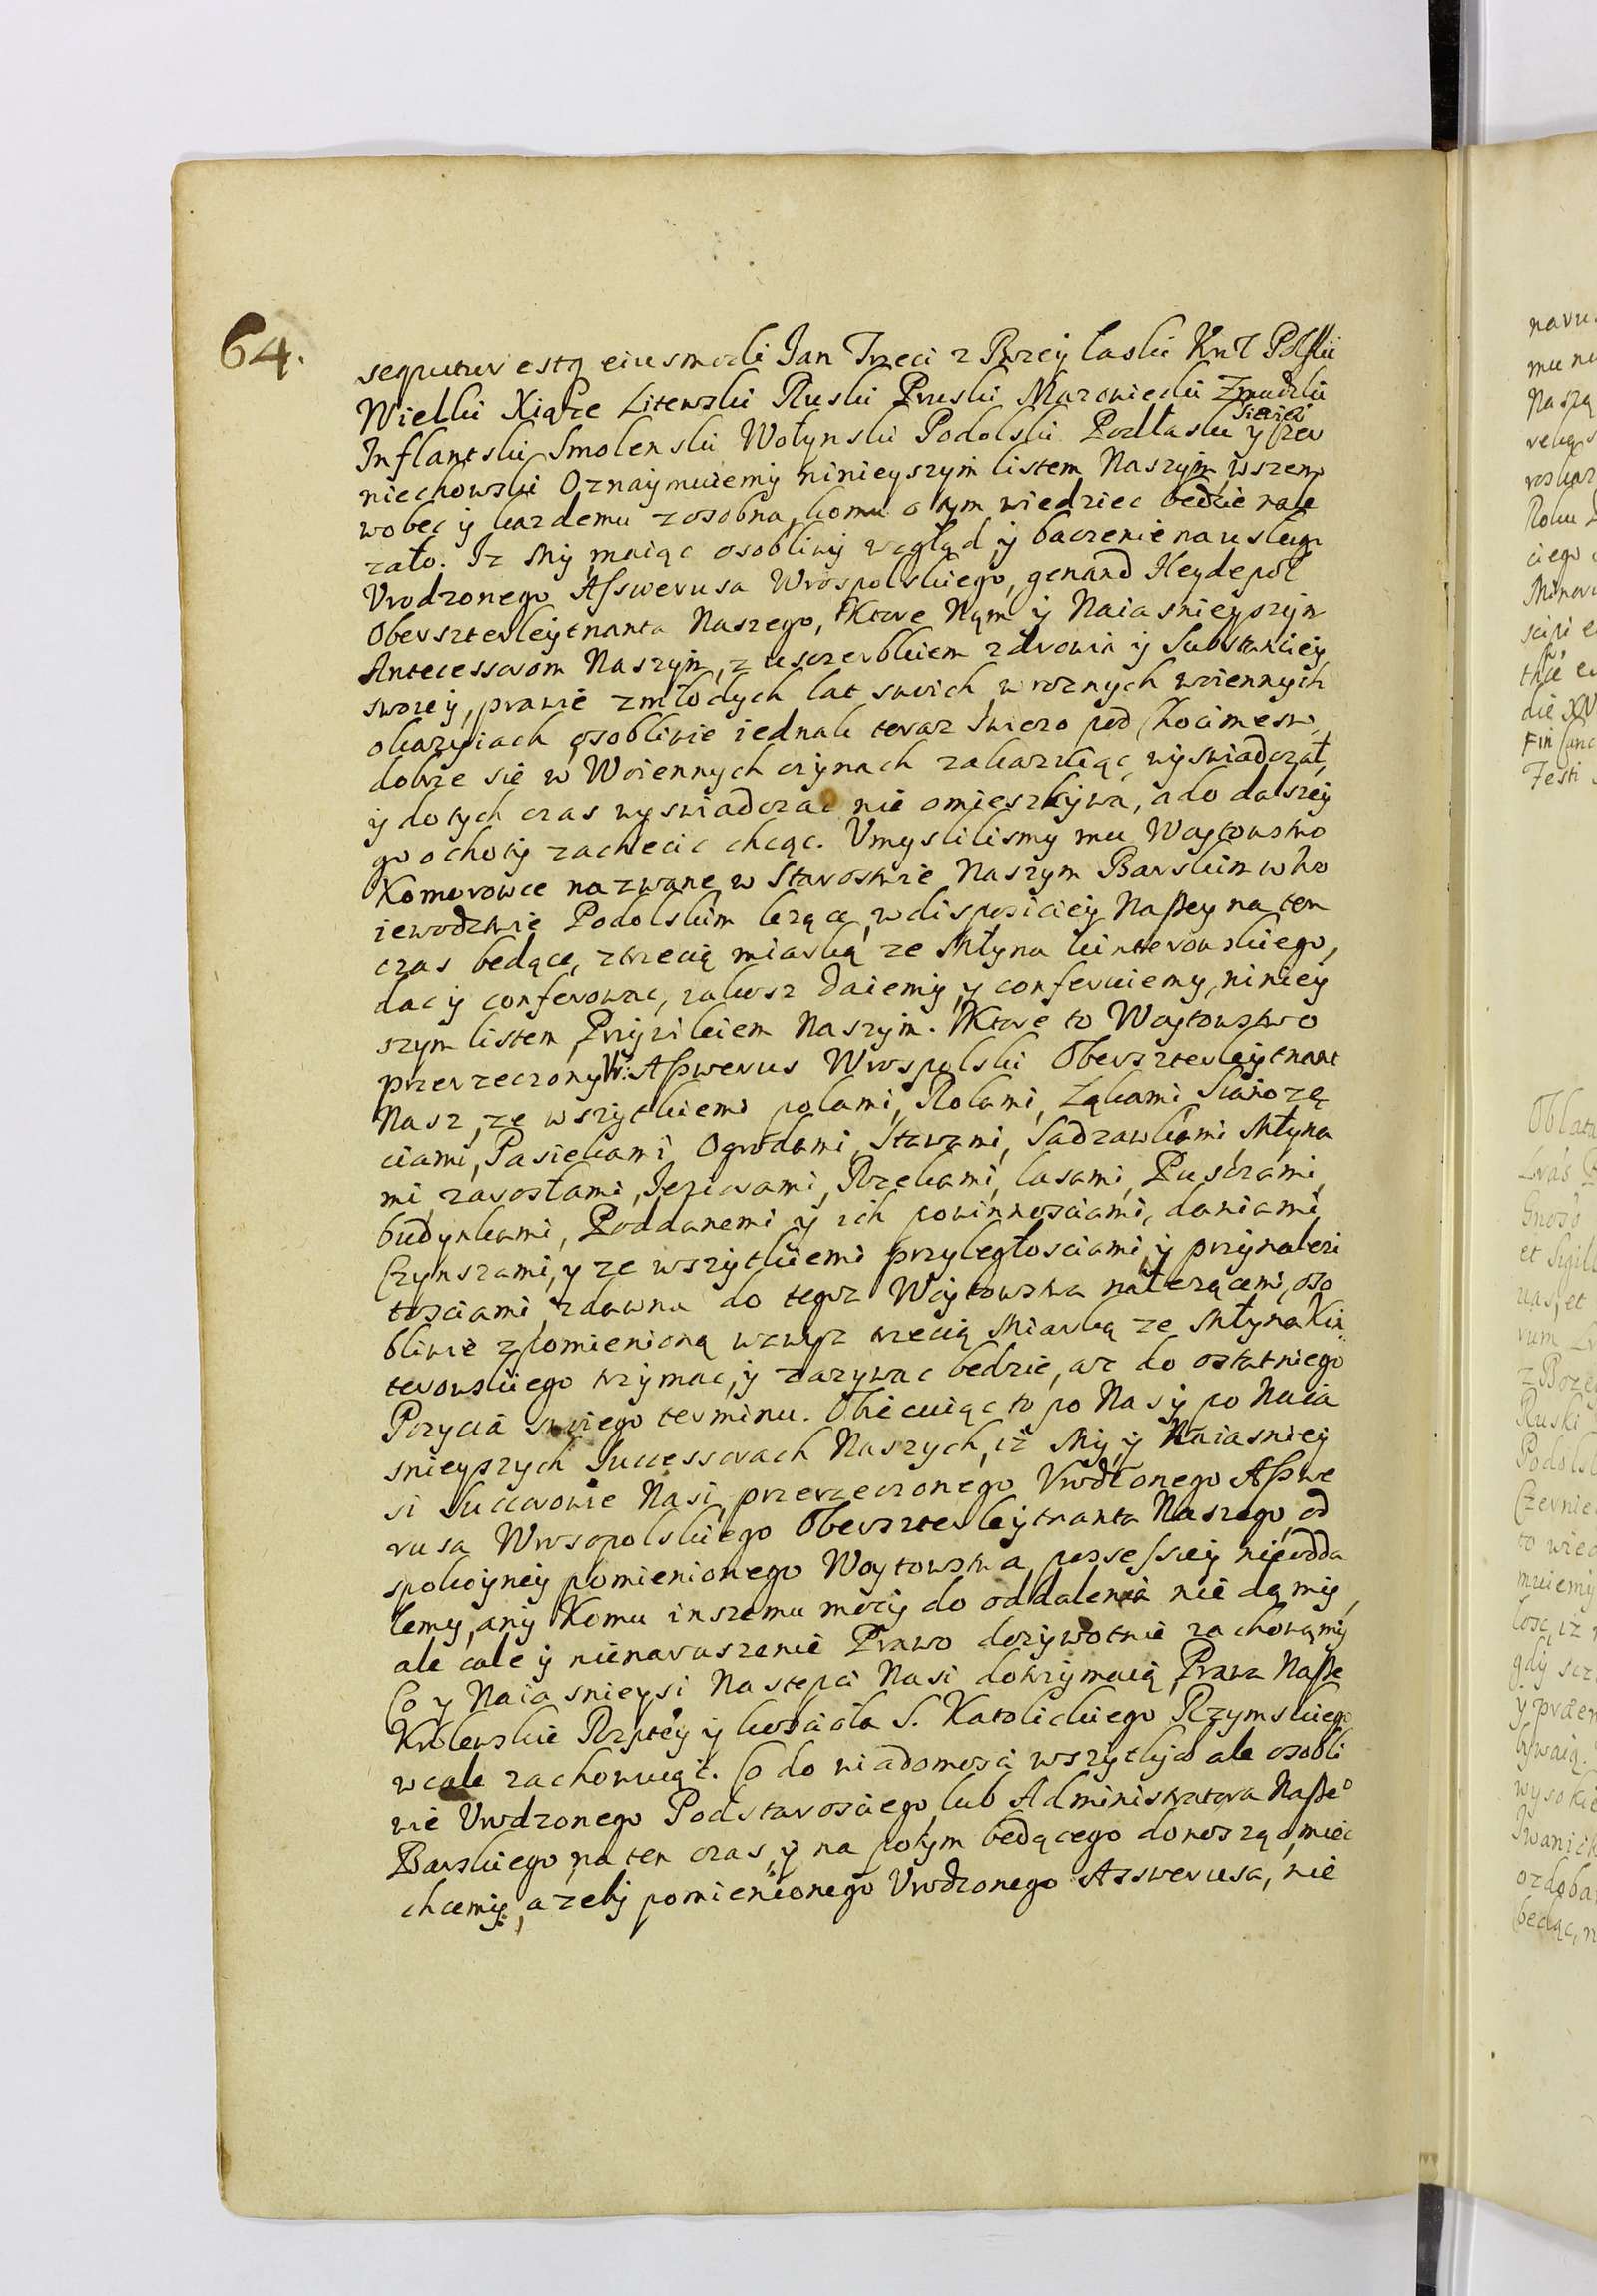 64.
sequitur estq eiusmodi Jan Trzeci z Bozey łaski Krol Polski
Wielki Xiąże Litewski Ruski Pruski Mazowiecki Zmudzki
Inflantski Smolenski Wołynski Podolski Podlaski Siewiers: y Czer
niechowski Oznaymuiemy ninieyszym listem Naszym, wszem
wobec y kazdemu zosobna, komu o tym wiedziec będzie nale
zało. Iz My maiąc osobliwy wzgląd y baczenie na usługi
Vrodzonego Assverusa Wrospolskiego, genand Heydepol
Oberszterleytnanta Naszego, Ktore Nąm y Naiasnieyszym
Antecessorom Naszym, z uszczerbkiem zdrowia y Substanciey
swoiey, prawie z młodych lat swoich w roznych woiennych
okazyiach osobliwie iednak teraz swiezo pod Chocimem
dobrze się w Woiennych czynach zakazuiąc, wyswiadczał,
y do tych czas wyswiadczac nie omieszkywa, a do dalszey
go ochoty zachecic chcąc. Vmyslilismy mu Woytowstwo
Komorowce nazwane w Starostwie Naszym Barskim w Wo
iewodztwie Podolskim lezące, w dispozyciey Naszey na ten
czas bedące, z trzecią miarką ze Młyna Kinterowskiego,
dac y conferowac, iakosz daiemy, y conferuiemy, niniey
szym listem, Przywileiem Naszym. Ktore to Woytowstwo
przerzeczony Vr: Asswerus Wrospolski Oberszterleytnant
Nasz, ze wszytkiemi polami, Rolami, Łąkami Sianozę
ciami, Pasiekami, Ogrodami, Stawami, Sadzawkami, Młyna
mi, zarosłami, Ieziorami, Rzekami, lasami, Puszczami,
budynkami, Poddanemi y ich powinnosciami, daniami,
Czynszami, y ze wszytkiemi przyległosciami, y przynalezi
tosciami, zdawna do tegoz Woytowstwa nalezącemi, oso
bliwie z pomienioną wzwysz trzecią Miarką ze Młyna Kin
terowskiego trzymac, y zazywac bedzie, az do ostatniego
Pozycia swoiego terminu. Obiecuiąc to po Nas y po Naia
snieyszych Successorach Naszych, iz My, y Naiasniey
si Succsorowie Nasi, przerzeczonego Vrodzonego Asswe
rusa Wrospolskiego Oberszterleytnanta Naszego, od
spokoyney pomienionego Woytowstwa, possessiey nie odda
lemy, any Komu inszemu mocy do oddalenia nie damy,
ale cale y nienaruszenie Prawo dozywotnie zachowamy
Co y Naiasnieysi Nastepci Nasi dotrzymaią, Prawa Nasze
Krolewskie Rzptey y koscioła S. Katolickiego Rzymskiego
wcale zachowuiąc. Co do wiadomosci wszytkich ale osobli
wie Vrodzonego Podstarosciego lub Administratora Nasze°
Barskiego na ten czas, y na potym będącego donosząc, miec
chcemy, azeby pomienionego Vrodzonego Assverusa, nie